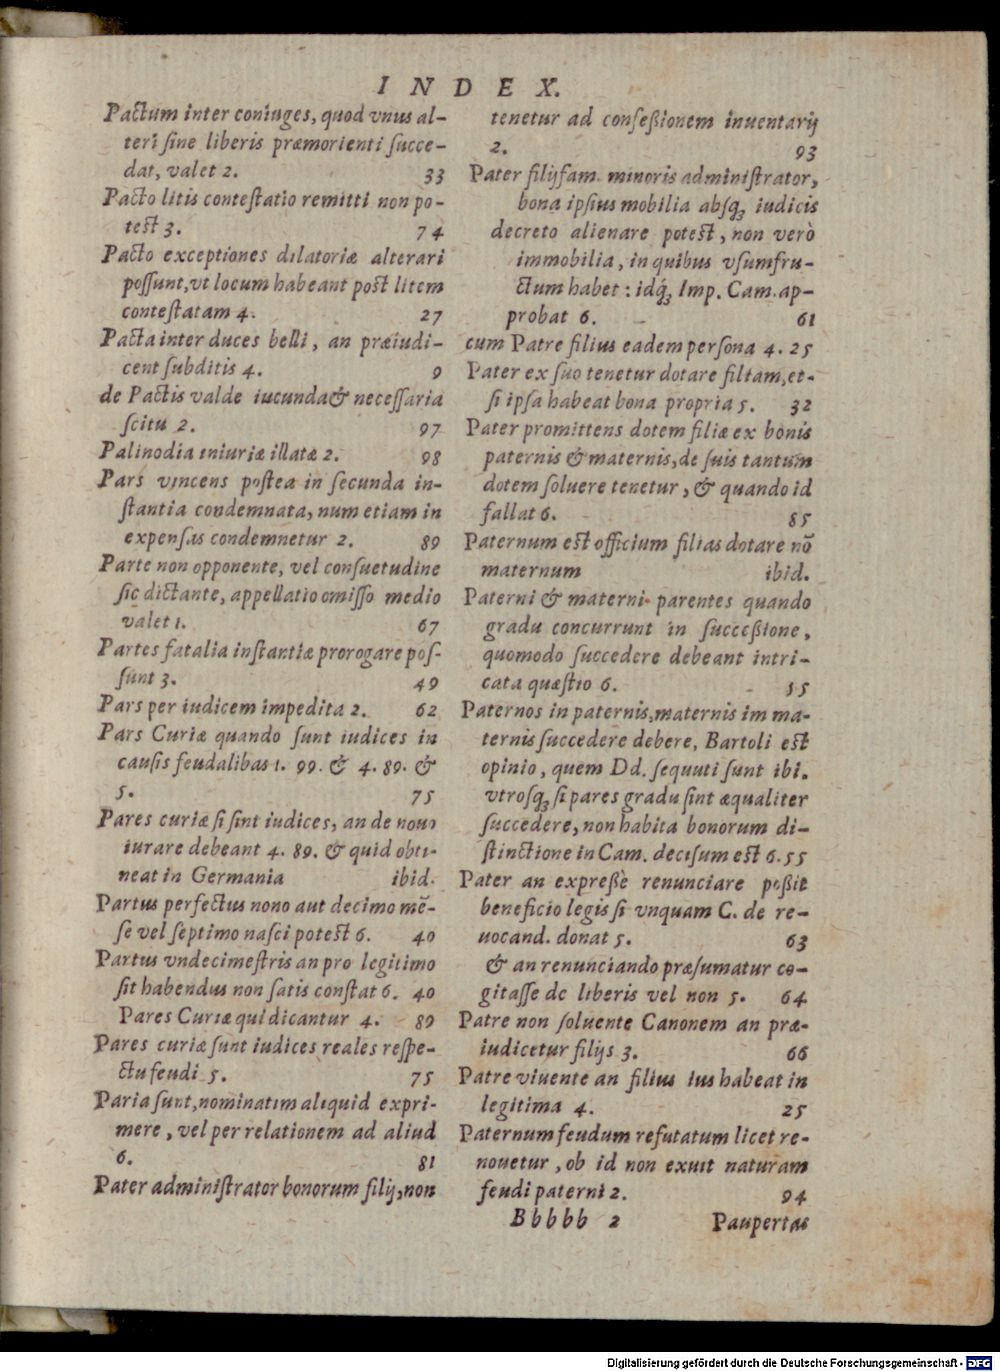 INDEX.
Pactum inter coniuges, quod vnus al-
teri ſine liberis præmorienti ſucce-
dat, valet 2. 33
Pacto litis conteſtatio remitti non po-
teſt 3. 74
Pacto exceptiones dilatoriæ alterari
poſſunt, vt locum habeant poſt litem
conteſtatam 4. 27
Pacta inter duces belli, an præiudi-
cent ſubditis 4. 9
de Pactis valde iucunda & neceſſaria
ſcitu 2. 97
Palinodia iniuriæ illatæ 2. 98
Pars vincens poſtea in ſecunda in-
ſtantia condemnata, num etiam in
expenſas condemnetur 2. 89
Parte non opponente, vel conſuetudine
ſic dictante, appellatio omiſſo medio
valet 1. 67
Partes fatalia inſtantiæ prorogare poſ-
ſunt 3. 49
Pars per iudicem impedita 2. 62
Pars Curiæ quando ſunt iudices in
cauſis feudalibas 1. 99. & 4. 89. &
5. 75
Pares curiæ ſi ſint iudices, an de nouo
iurare debeant 4. 89. & quid obti-
neat in Germania ibid.
Partus perfectus nono aut decimo mẽ-
ſe vel ſeptimo naſci poteſt 6. 40
Partus vndecimeſtris an pro legitimo
ſit habendus non ſatis conſtat 6. 40
Pares Curiæ qui dicantur 4. 89
Pares curiæ ſunt iudices reales reſpe-
ctu feudi 5. 75
Paria ſunt, nominatim aliquid expri-
mere, vel per relationem ad aliud
6. 81
Pater adminiſtrator bonorum filij, non
tenetur ad confeßionem inuentarij
2. 93
Pater filijfam. minoris adminiſtrator,
bona ipſius mobilia abſq; iudicis
decreto alienare poteſt, non verò
immobilia, in quibus vſumfru-
ctum habet: idq́; Imp. Cam. ap-
probat 6. 61
cum Patre filius eadem perſona 4. 25
Pater ex ſuo tenetur dotare filiam, et-
ſi ipſa habeat bona propria 5. 32
Pater promittens dotem filiæ ex bonis
paternis & maternis, de ſuis tantum
dotem ſoluere tenetur, & quando id
fallat 6. 85
Paternum eſt officium filias dotare nõ
maternum ibid.
Paterni & materni parentes quando
gradu concurrunt in ſucceßione,
quomodo ſuccedere debeant intri-
cata quæſtio 6. 55
Paternos in paternis, maternis im ma-
ternis ſuccedere debere, Bartoli eſt
opinio, quem Dd. ſequuti ſunt ibi.
vtroſq; ſi pares gradu ſint æqualiter
ſuccedere, non habita bonorum di-
ſtinctione in Cam. deciſum eſt 6. 55
Pater an expreßè renunciare poßit
beneficio legis ſi vnquam C. de re-
uocand. donat 5. 63
& an renunciando præſumatur co-
gitaſſe de liberis vel non 5. 64
Patre non ſoluente Canonem an præ-
iudicetur filijs 3. 66
Patre viuente an filius ius habeat in
legitima 4. 25
Paternum feudum refutatum licet re-
nouetur, ob id non exuit naturam
feudi paterni 2. 94
Bbbbb 2 Paupertas
Digitalisierung gefördert durch die Deutsche Forschungsgemeinschaft - DFG